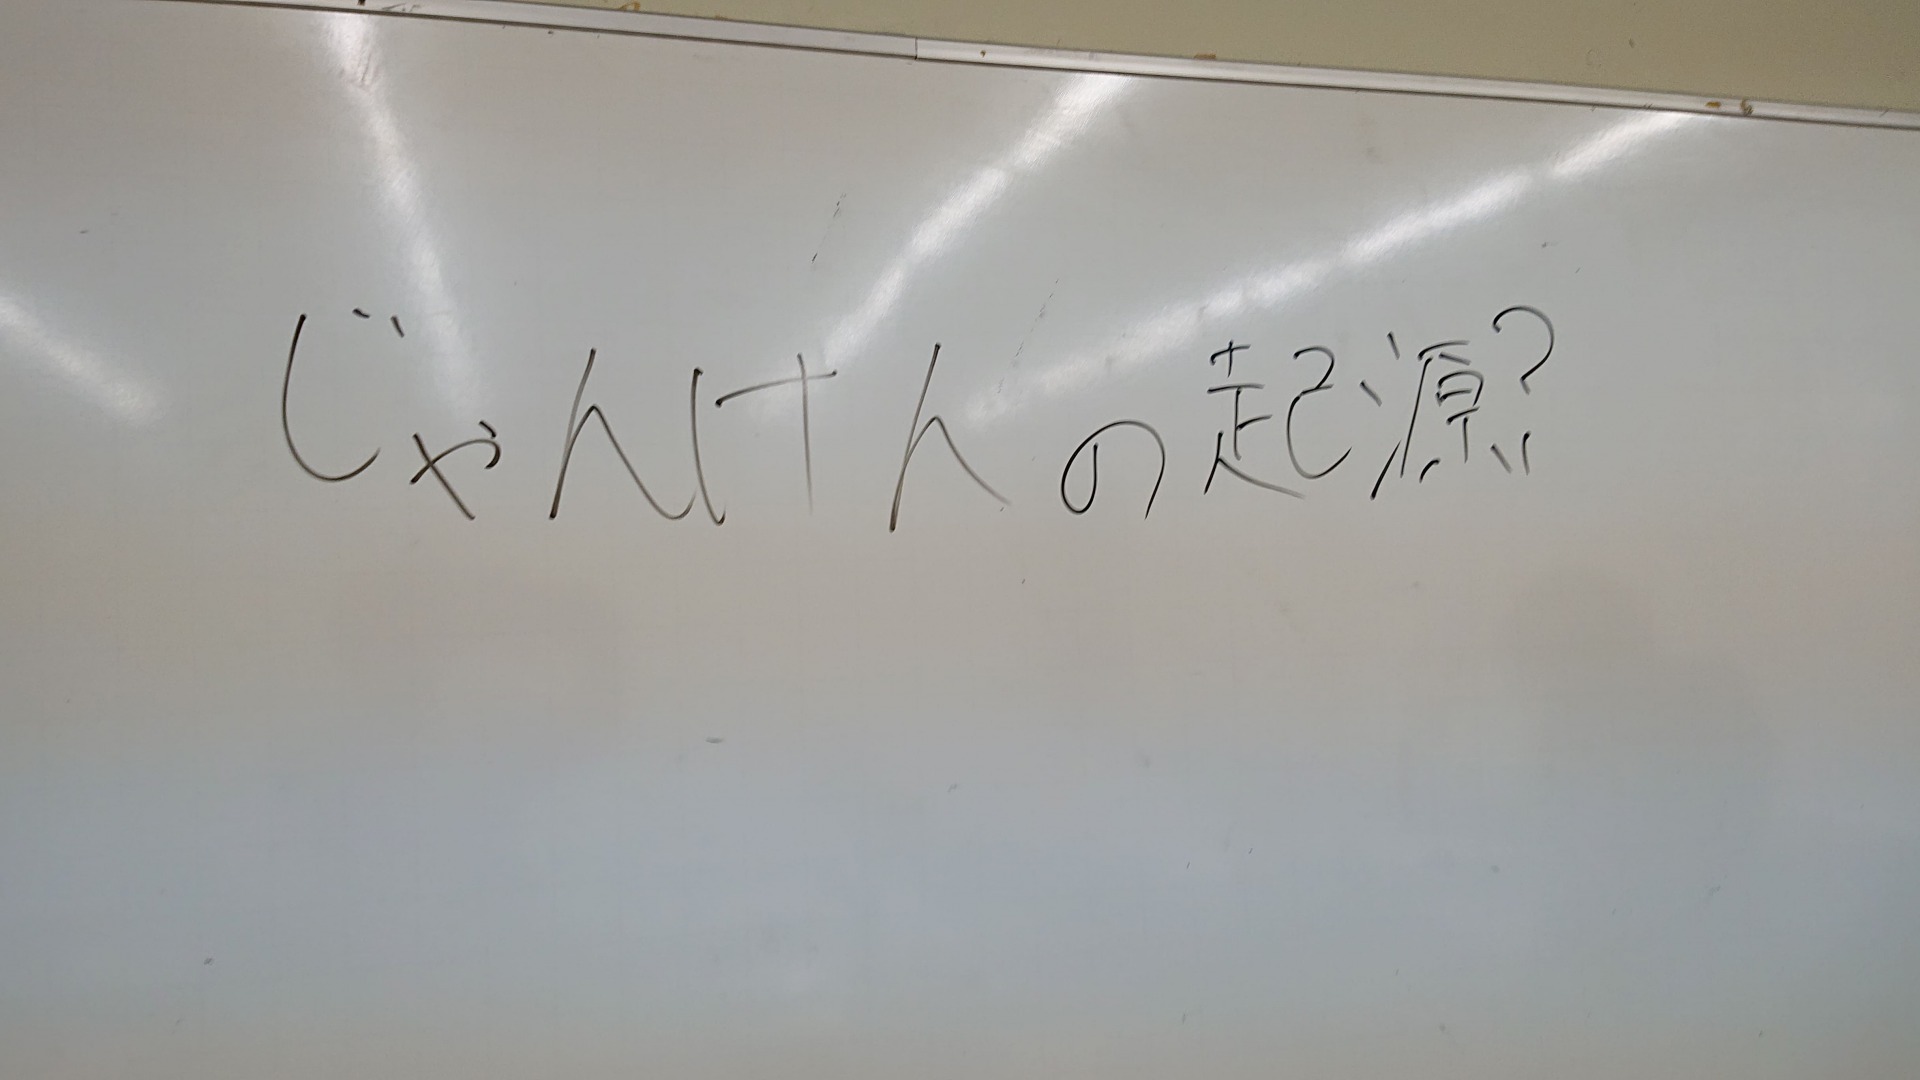 じゃんけんの起源?